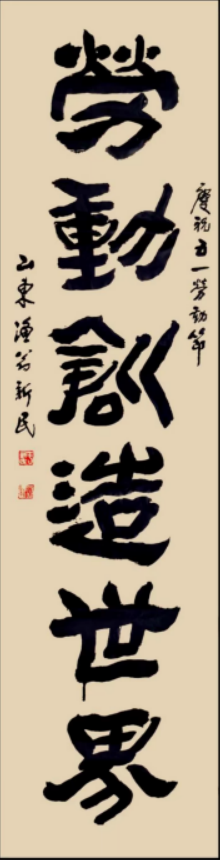 慶祝五一勞動節
勞動創造世界
山東漁翁新民